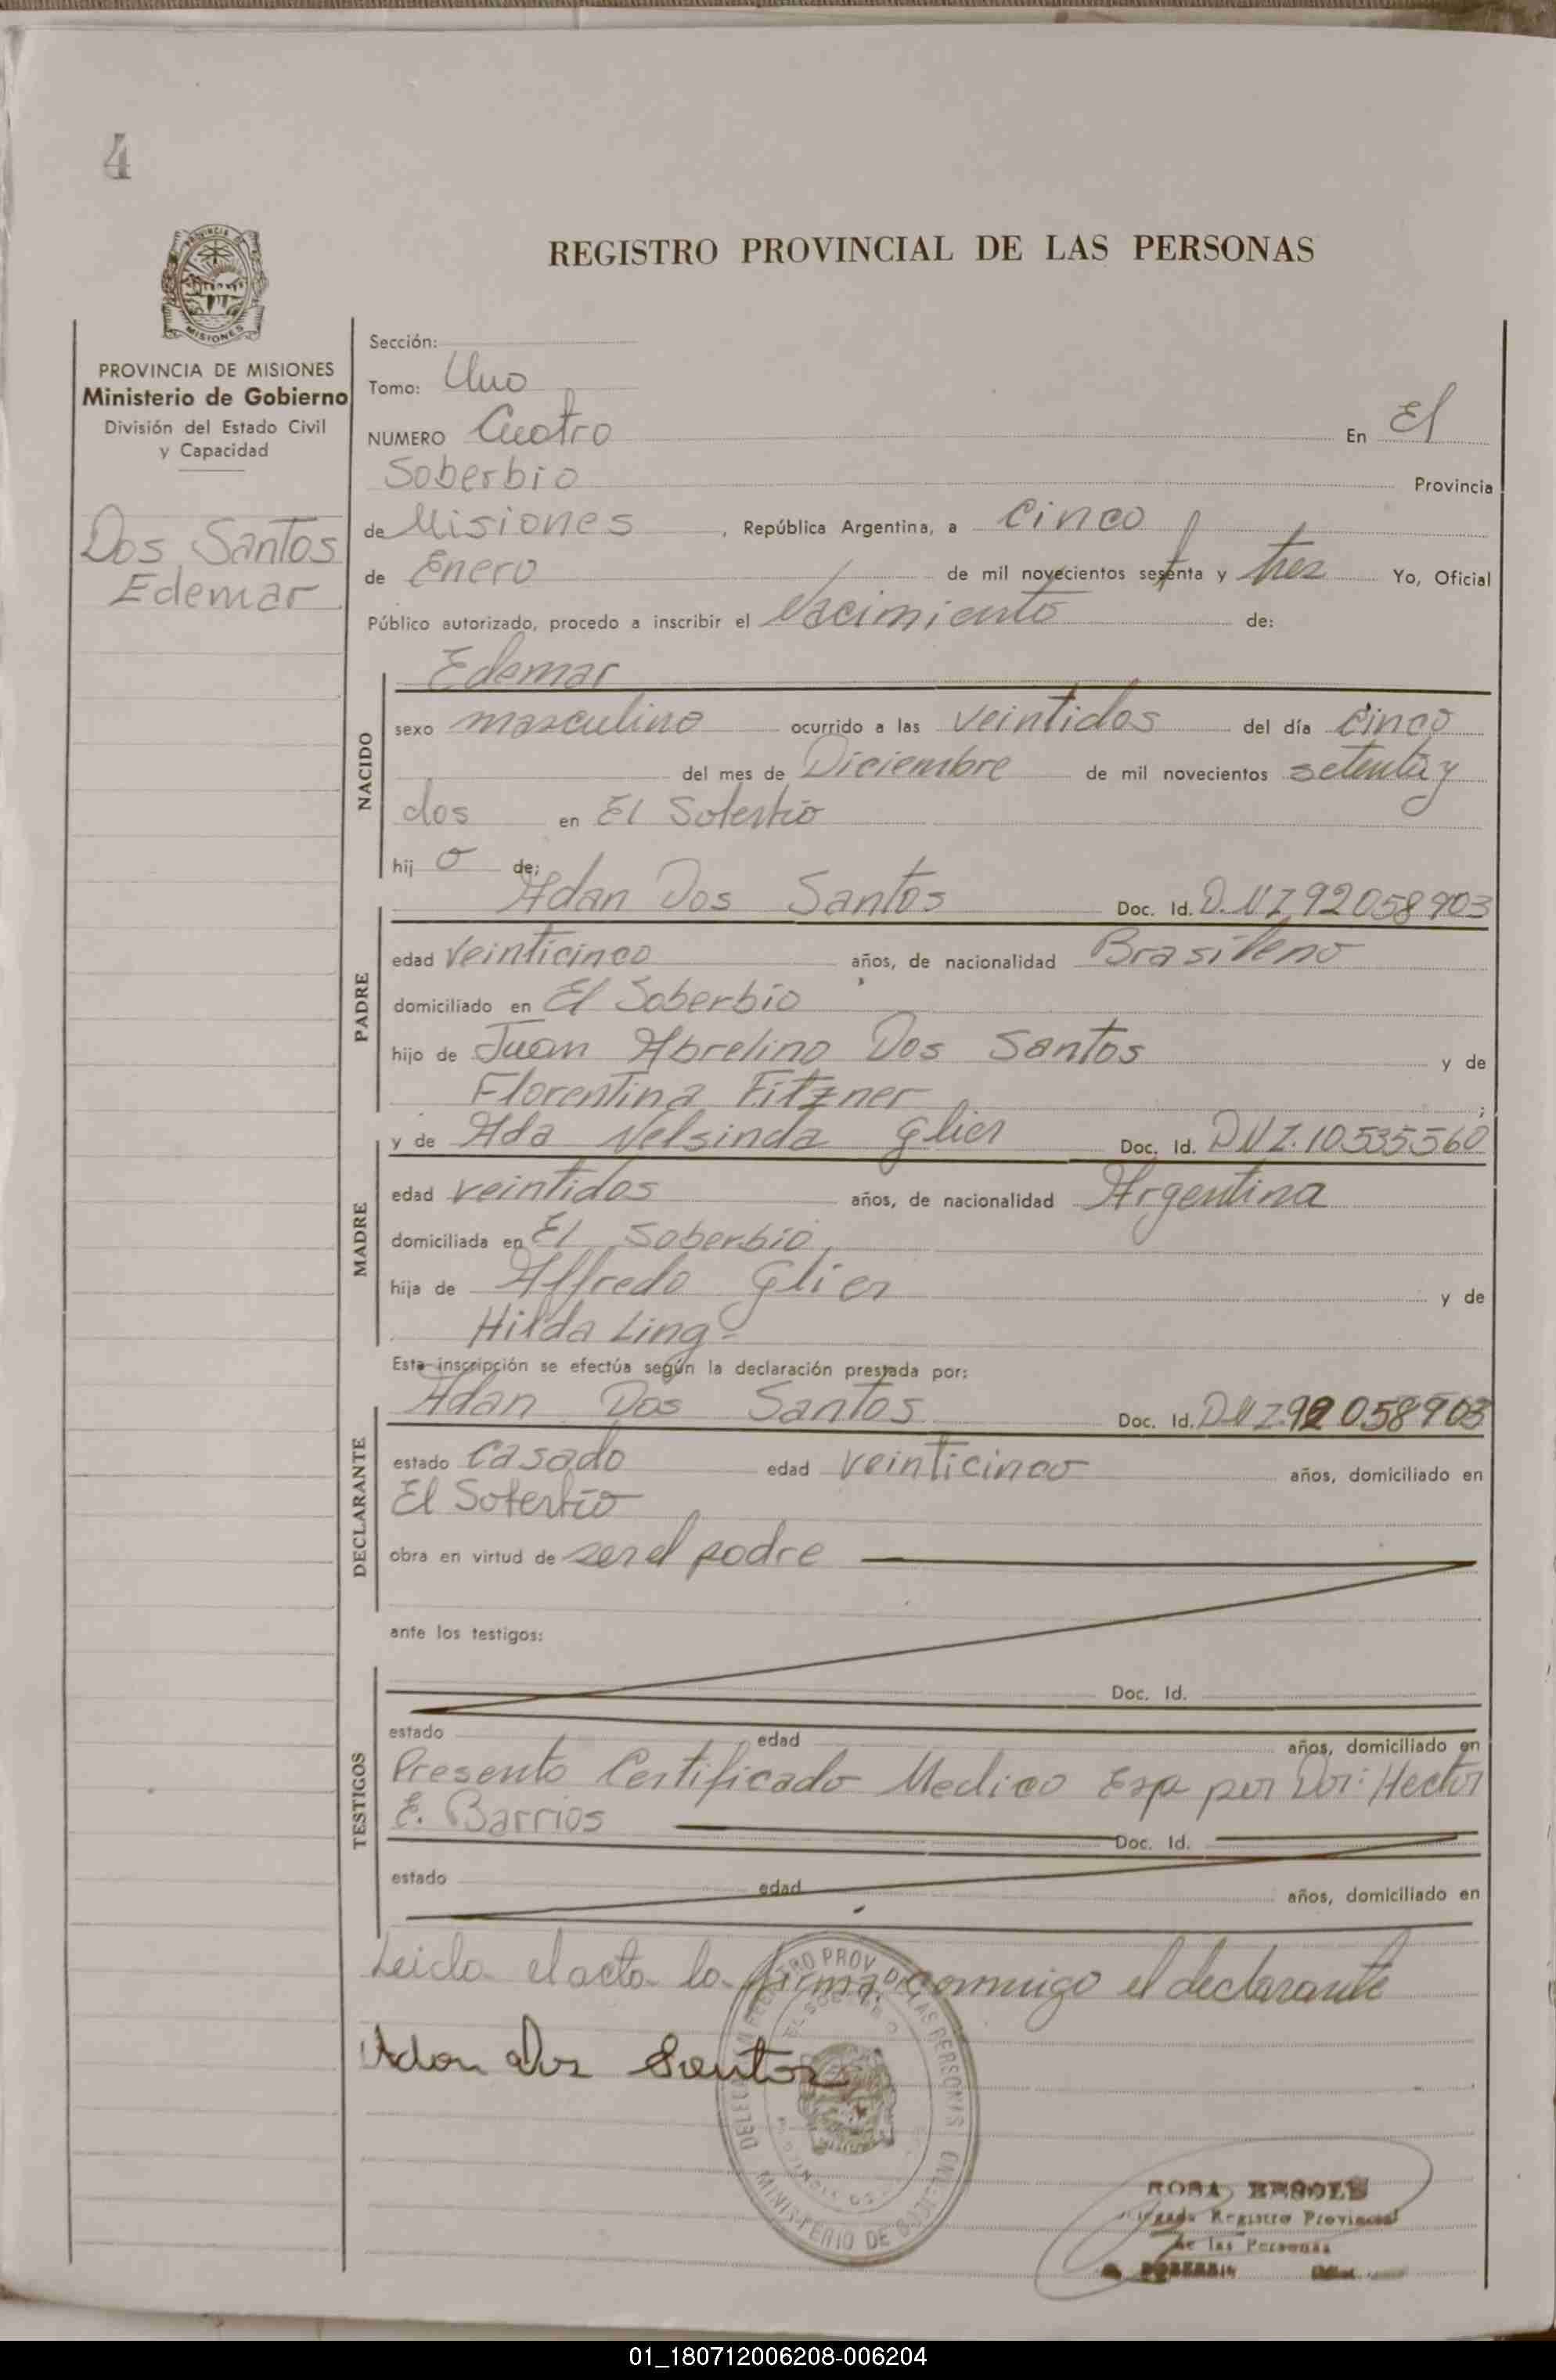 4
REGISTRO PROVINCIAL DE LAS PERSONAS
PROVINCIA DE MISIONES
Ministerio de Gobierno
División del Estado Civil
y Capacidad
Dos Santos
Edemar
Sección:
Tomo: Uno
NUMERO Cuatro En El
Soberbio Provincia
de Misiones, República Argentina, a cinco
de Enero de mil novecientos sesenta y tres Yo, Oficial
Público autorizado, procedo a inscribir el Nacimiento de:
NACIDO
Edemar
sexo masculino ocurrido a las veintidos del día cinco
del mes de Diciembre de mil novecientos setenta y
dos en El Soberbio
hij o de;
PADRE
Adan Dos Santos Doc. Id. D.N.I 92058903
edad veinticinco años, de nacionalidad Brasileno
domiciliado en El Soberbio
hijo de Juan Abrelino Dos Santos y de
Florentina Fitzner;
MADRE
y de Ada Nelsinda Glier Doc. Id. DNI.10.535.560
edad veintidos años, de nacionalidad Argentina
domiciliada en El Soberbio
hija de Alfredo Glier y de
Hilda Ling-
Esta inscripción se efectúa según la declaración prestada por:
DECLARANTE
Adan Dos Santos Doc. Id. DNI.92058903
estado casado edad veinticinco años, domiciliado en
El Soberbio
obra en virtud de ser el padre
ante los testigos:
TESTIGOS
Doc. Id.
estado edad años, domiciliado en
Presento Certificado Medico Exp por Dor: Hector
E. Barrios
Doc. Id.
estado edad años, domiciliado en
Leida el acta la firma, conmigo el declarante
Adan Dos Santos
MINISTERIO DE
ROSA
Registro Provincial
de las Personas
01_180712006208-006204